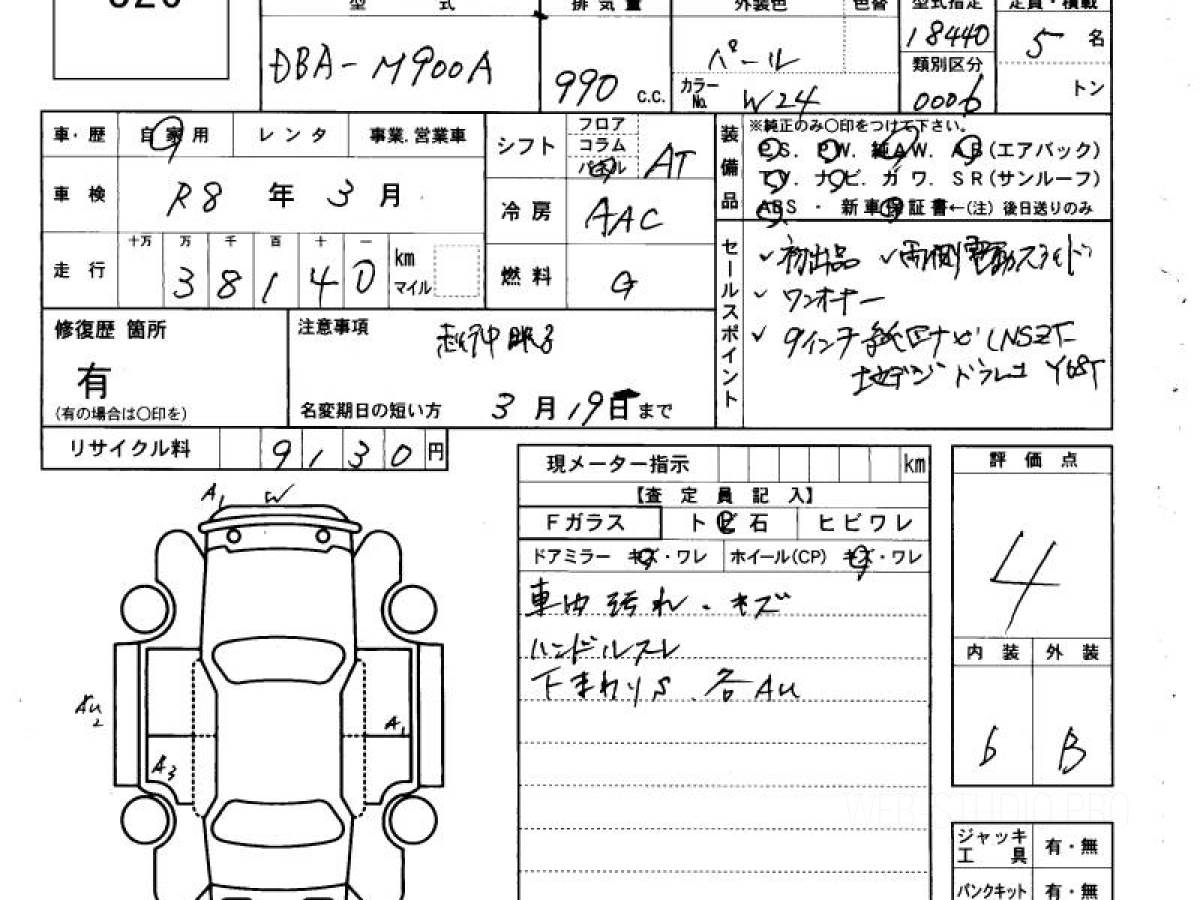 型 式
排 気 量
外装色
色替
型式指定
定員・積載
DBA-M900A
990 c.c.
パール
カラーNo. W24
18440
類別区分
0006
5 名
トン
車・歴
自家用
レンタ
事業.営業車
シフト
フロア
コラム
パネル
AT
装備品
※純正のみ〇印をつけて下さい。
P.S. P.W. 純AW. AB(エアバック)
TV. ナビ. ガワ. SR(サンルーフ)
ABS ・ 新車保証書←(注) 後日送りのみ
車 検
R8 年 3 月
冷 房
AAC
走 行
十万 万 千 百 十 一
3 8 1 4 0
km
マイル
燃 料
G
セールスポイント
✓初出品 ✓両側電動スライド
✓ワンオーナー
✓9インチ純正ナビ(NSZT-Y68T
地デジ ドラレコ
修復歴 箇所
有
(有の場合は〇印を)
注意事項
名変期日の短い方 3 月 19 日 まで
リサイクル料
9 1 3 0 円
現メーター指示
km
【査 定 員 記 入】
Fガラス
トビ石
ヒビワレ
ドアミラー キズ・ワレ
ホイール(CP) キズ・ワレ
車内 汚れ . キズ
ハンドルスレ
下まわりS . 各AU
評 価 点
4
内 装
外 装
b
B
A1
W
AU2
A1
A3
ジャッキ工具
有・無
パンクキット
有・無
WEB STUDIO PRO